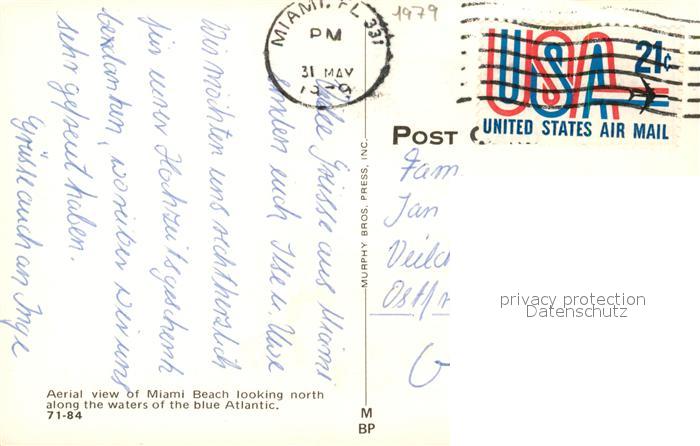 MIAMI, FL 331
PM
31 MAY
1979
USA 21c
UNITED STATES AIR MAIL
POST
Liebe Grüsse aus Miami
senden euch Ilse u. Uwe
Wir möchten uns recht herzlich
für unser Hochzeitsgeschenk
bedanken, worüber wir uns
sehr gefreut haben.
Grüsse auch an Inge
MURPHY BROS. PRESS, INC.
Fam
Jan
Veilc
Ostfr
privacy protection
Datenschutz
Aerial view of Miami Beach looking north
along the waters of the blue Atlantic.
71-84
M
BP